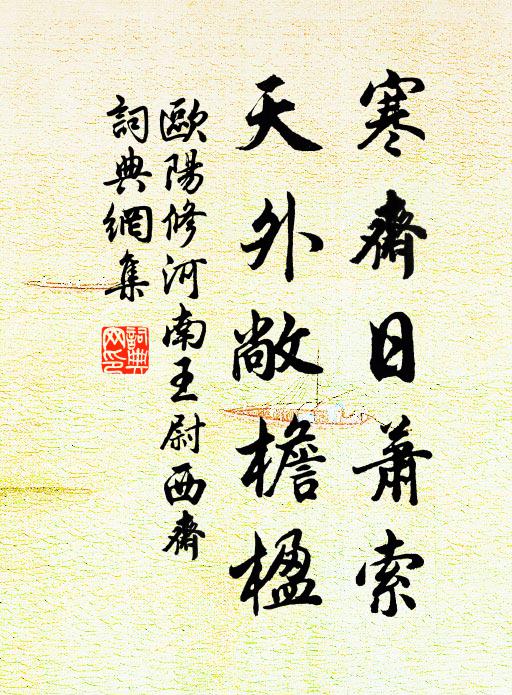 寒齋日蕭索
天外敞檐楹
歐陽修河南王尉西齋
詞典網集
詞典
网印